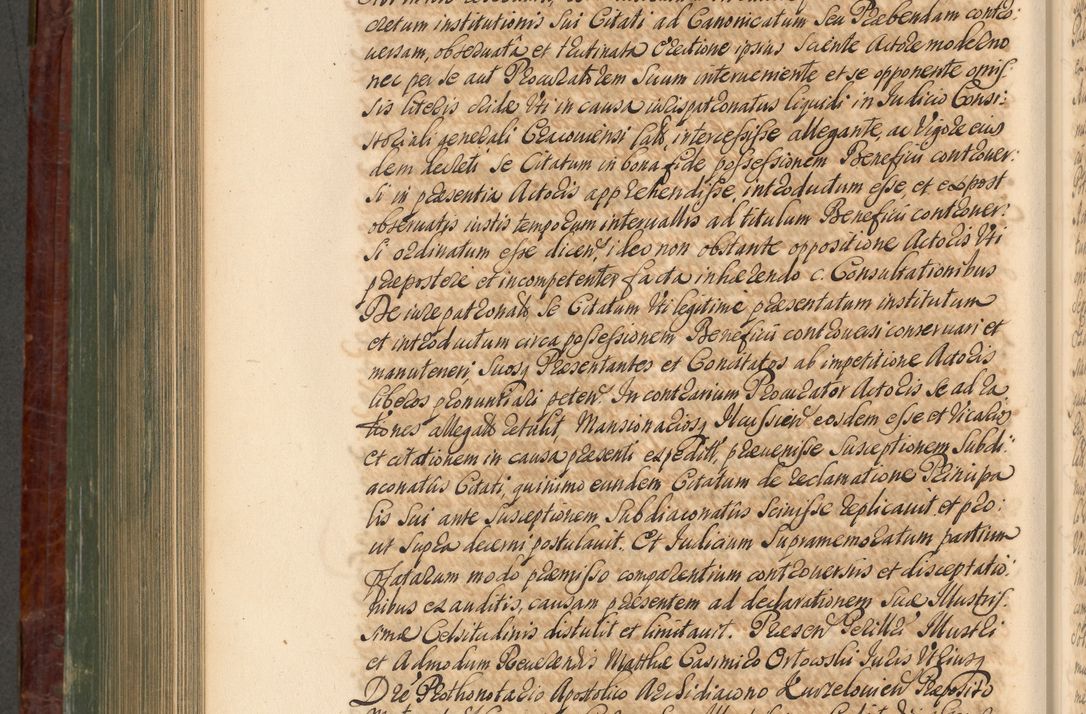 cretum institutionis sui Citati ad Canonicatum seu Præbendam contro:
uersam, obseruatâ et trutinata Erectione ipsius sciente Actore moderno
nec per se aut Procuratorem suum interueniente et se opponente omis:
sis literis cridæ Uti in causa iurispatronatus liquidi in Iudicio Consi:
storiali generali Cracouiensi lat, intercessisse allegante, ac Vigore eius
dem decreti se Citatum in bona fide possessionem Beneficii controuer:
si in præsentia Actoris apprehendisse, introductum esse et expost
obseruatis iustis temporum interuallis ad titulum Beneficii controuer:
si ordinatum esse dicen, ideo non obstante oppositione Actoris Uti
præpostere et incompetenter facta inhærendo c. Consultationibus
De iure patronat se Citatum Uti legitime præsentatum institutum
et introductum circa possessionem Beneficii controuersi conseruari et
manuteneri, suosq Præsentantes et Concitatos ab impetitione Actoris
liberos pronuntiari peten. In contrarium Procurator Actoris se ad ra
tiones allegat retulit, Mansionariosq Ilcussien eosdem esse et Vicarios
et citationem in causa præsenti expedit, præuenisse susceptionem subdi:
aconatus Citati, quinimo eundem Citatum de reclamatione Principa
lis sui ante susceptionem subdiaconatus sciuisse replicauit et pro:
ut supra decerni postulauit. Et Iudicium supramemoratum partium
Pfatarum modo præmisso comparentium controuersiis et disceptatio:
nibus exauditis, causam præsentem ad declarationem suæ Illustris:
simæ Celsitudinis distulit et limitauit. Præsen Perilli Illustri
et Admodum Reuerendis Matthæo Casimiro Orlowski Iuris Utriusq
Dre Prothonotario Apostolico Archidiacono Kurzelouien Præposito